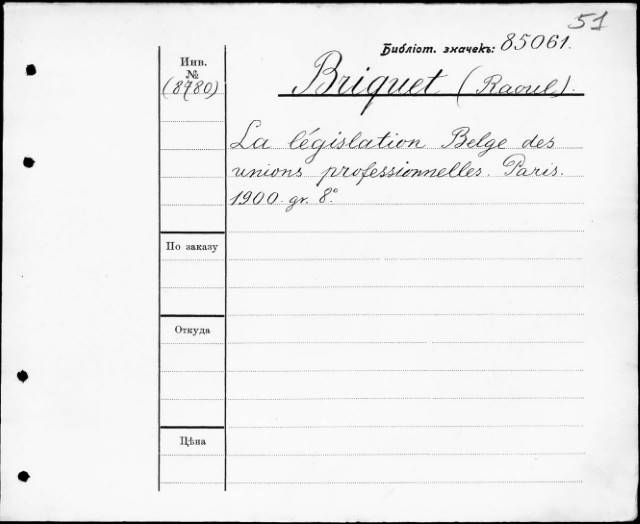 51
Библіот. значекъ: 85061.
Инв.
№
(8780)
Briquet (Raoul).
La législation Belge des
unions professionnelles. Paris.
1900. gr. 8°.
По заказу
Откуда
Цѣна